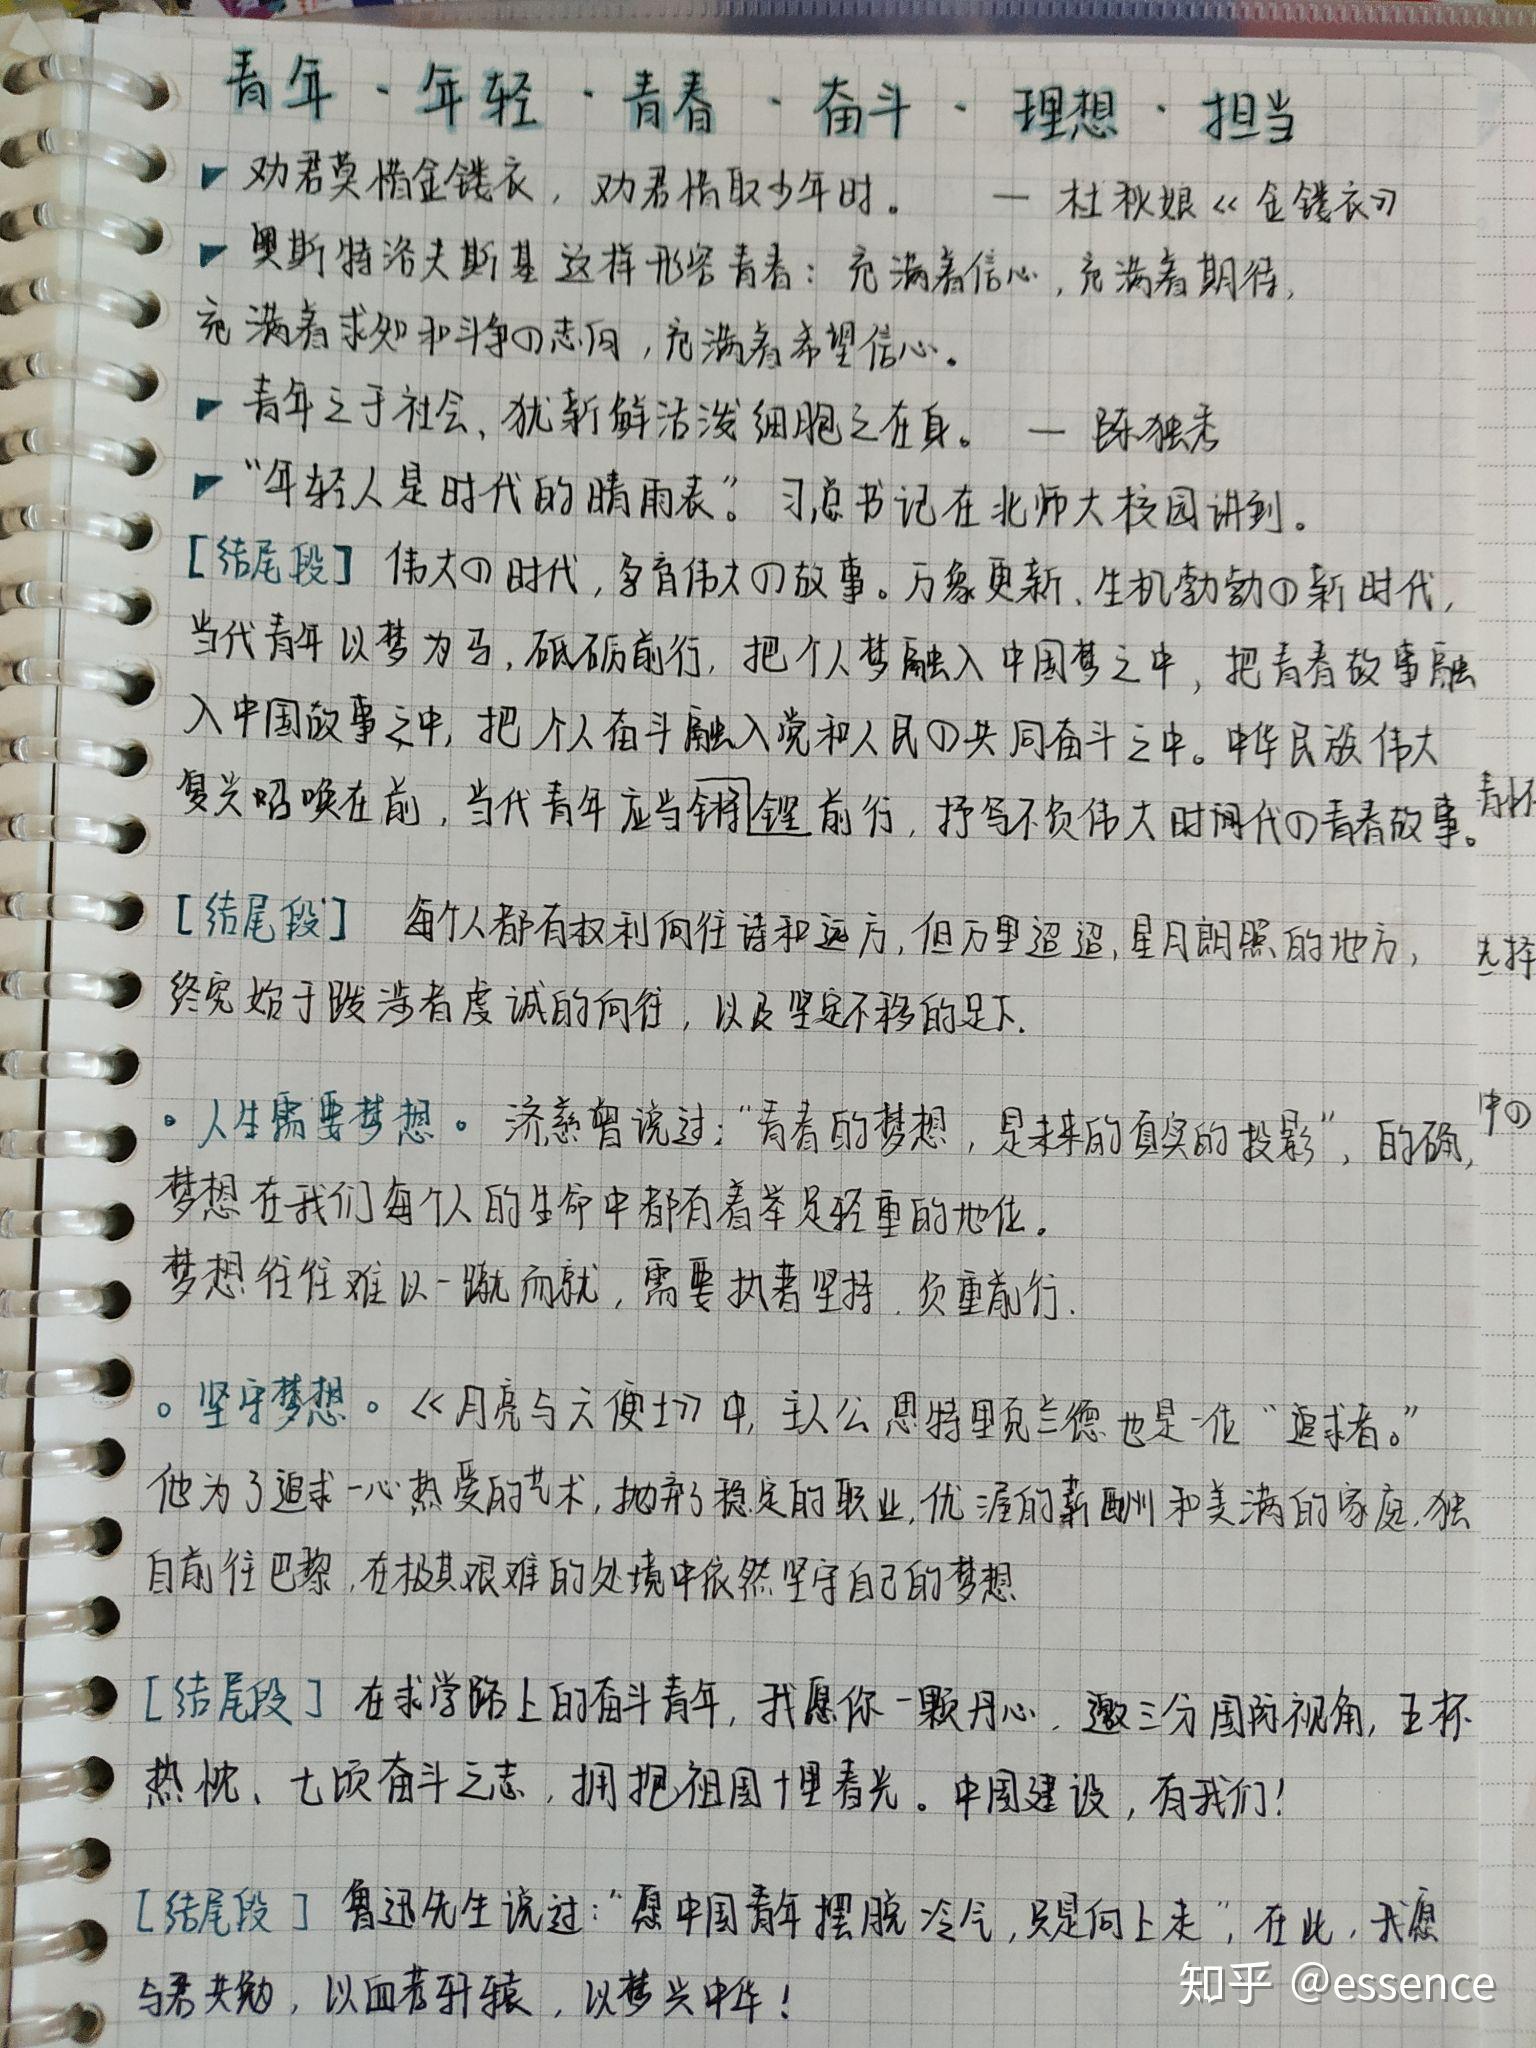 青年·年轻·青春·奋斗·理想·担当
劝君莫惜金镂衣，劝君惜取少年时。 — 杜秋娘《金镂衣》
奥斯特洛夫斯基这样形容青春：充满着信心，充满着期待，
充满着求知和斗争の志向，充满着希望信心。
青年之于社会、犹新鲜活泼细胞之在身。 — 陈独秀
“年轻人是时代的晴雨表”。习总书记在北师大校园讲到。
[结尾段] 伟大の时代，孕育伟大の故事。万象更新、生机勃勃の新时代，
当代青年以梦为马，砥砺前行，把个人梦融入中国梦之中，把青春故事融
入中国故事之中，把个人奋斗融入党和人民の共同奋斗之中。中华民族伟大
复兴召唤在前，当代青年应当铿锵前行，抒写不负伟大时代の青春故事。
[结尾段] 每个人都有权利向往诗和远方，但万里迢迢，星月朗照的地方，
终究始于跋涉者虔诚的向往，以及坚定不移的足下.
。人生需要梦想。济慈曾说过：“青春的梦想，是未来的真实的投影”，的确，
梦想在我们每个人的生命中都有着举足轻重的地位。
梦想往往难以一蹴而就，需要执着坚持、负重前行.
。坚守梦想。《月亮与六便士》中，主人公思特里克兰德也是一位“追求者。”
他为了追求一心热爱的艺术，抛弃了稳定的职业，优渥的薪酬和美满的家庭，独
自前往巴黎，在极其艰难的处境中依然坚守自己的梦想
[结尾段] 在求学路上的奋斗青年，我愿你一颗丹心、邀三分国际视角，五杯
热忱、七顷奋斗之志，拥抱祖国十里春光。中国建设，有我们！
[结尾段] 鲁迅先生说过：“愿中国青年摆脱冷气，只是向上走”，在此，我愿
与君共勉，以血荐轩辕，以梦兴中华！
中の
知乎 @essence